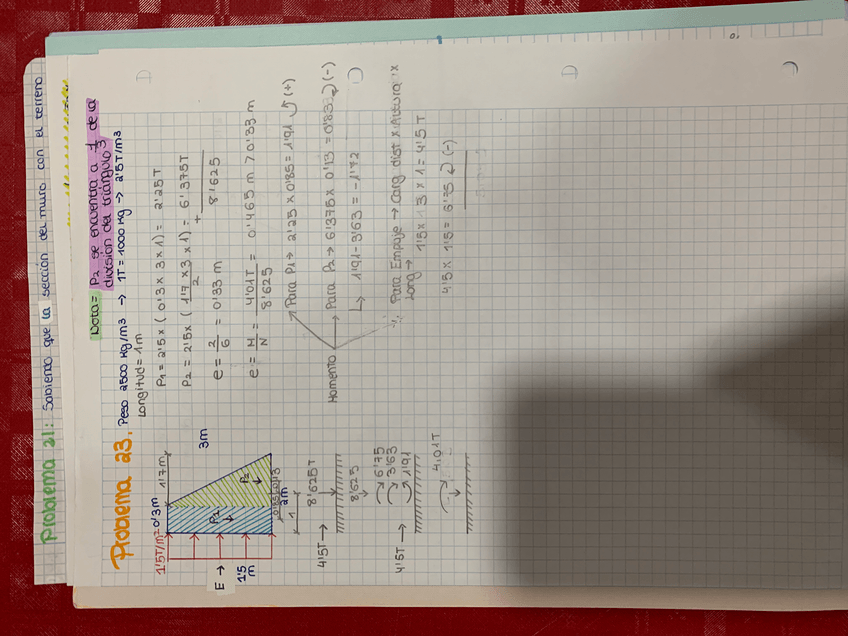 Problema 21: Sabiendo que la sección del muro con el terreno
Nota= P2 se encuentra a 1/3 de la
división del triángulo
Problema 23. Peso 2500 Kg/m3 → 1T = 1000 Kg → 2'5T/m3
Longitud = 1m
P1 = 2'5 x (0'3 x 3 x 1) = 2'25T
P2 = 2'5 x (1'7 x 3 / 2 x 1) = 6'375T
+
8'625
e = 2/6 = 0'33 m
e = M/N = 4'01T / 8'625 = 0'465 m > 0'33 m
Momento
Para P1 → 2'25 x 0'85 = 1'91 (+)
Para P2 → 6'375 x 0'13 = 0'83 (-)
↳ 1'91 - 3'63 = -1'72
Para Empuje → Carg dist x Altura x
Long → 1'5 x 3 x 1 = 4'5T
4'5 x 1'5 = 6'75 (-)
1'5T/m=
0'3m
1'7m
3m
E →
1'5
m
P1
P2
0'85
0'13
2m
1
4'5T →
8'625T
8'625
4'5T →
6'75
3'63
1'91
4'01T